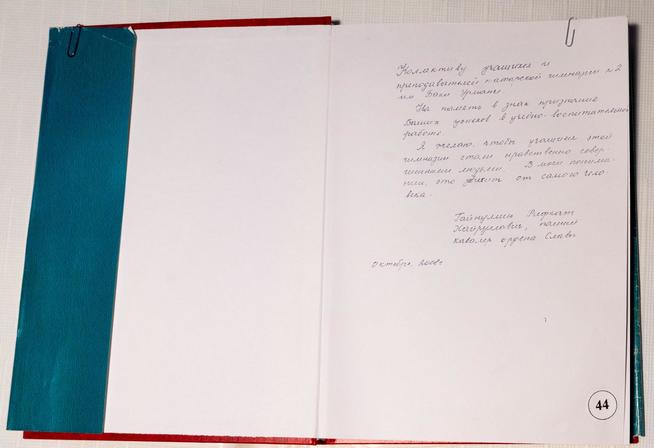 Коллективу учащихся и
преподавателей татарской гимназии №2
им. Баки Урманче.
На память в знак признания
Ваших успехов в учебно-воспитательной
работе.
Я желаю, чтобы учащиеся этой
гимназии стали нравственно совер-
шенными людьми. В моем понима-
нии, это зависит от самого чело-
века.
Гайнуллин Рифкат
Хайруллович, полный
кавалер ордена Славы
Октябрь
44